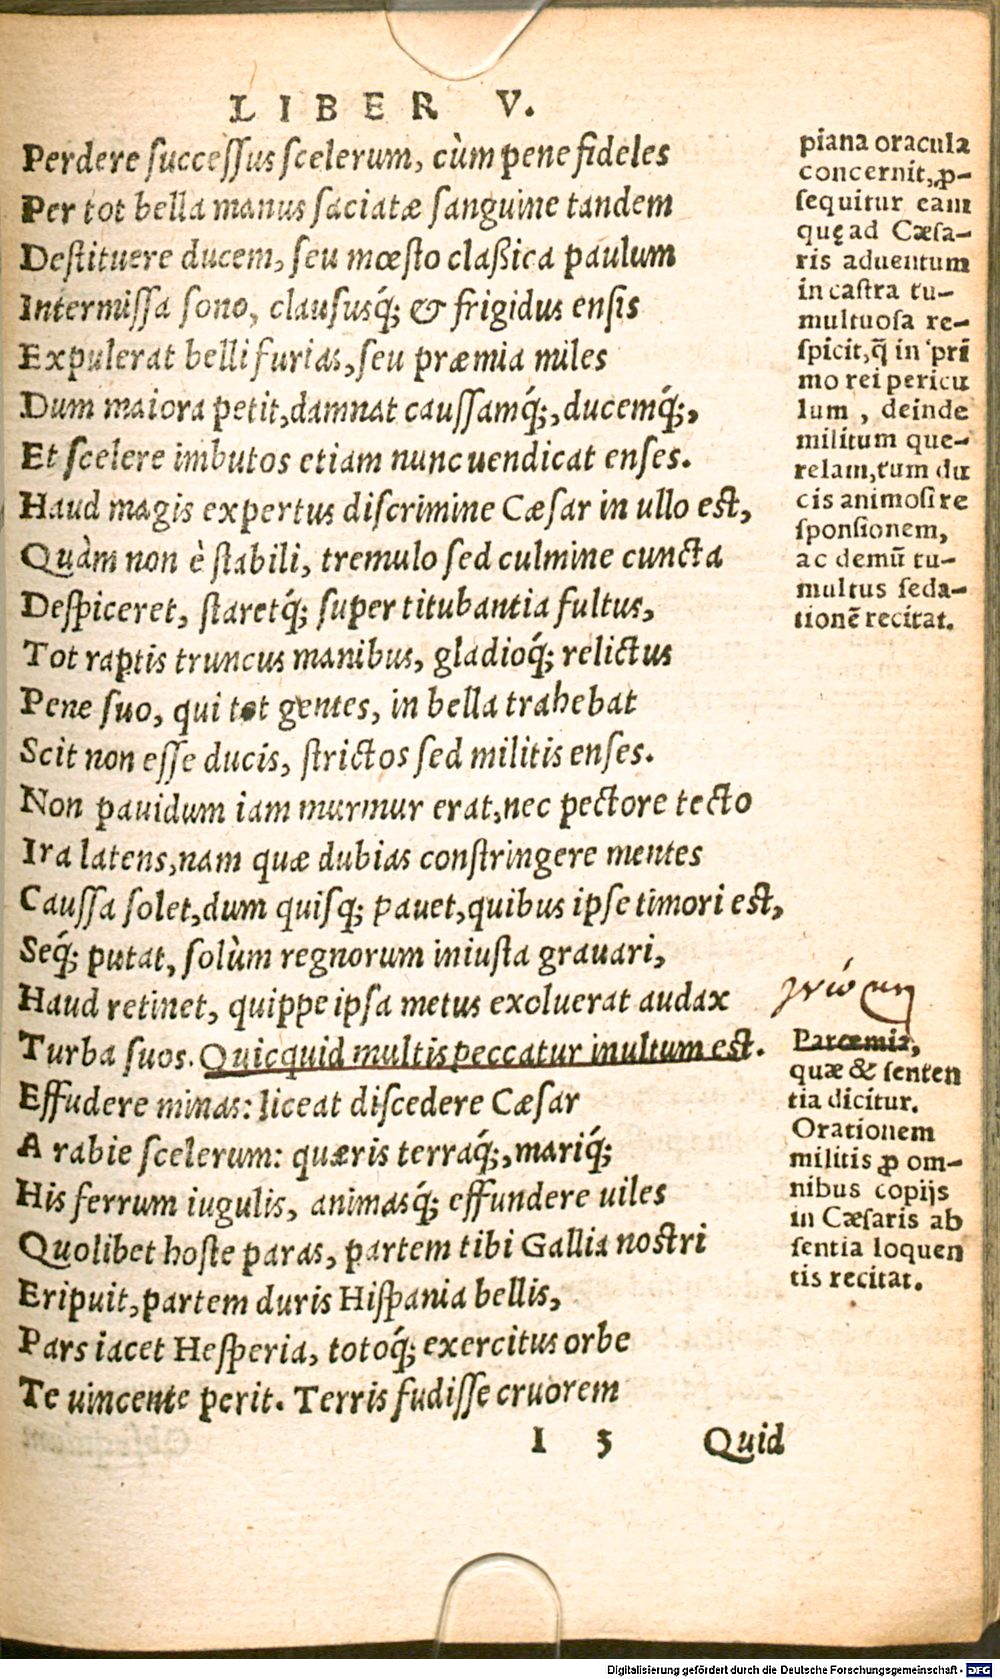 LIBER V.
Perdere ſucceſſus ſcelerum, cùm pene fideles
Per tot bella manus ſaciatæ ſanguine tandem
Deſtituere ducem, ſeu mœſto claßica paulum
Intermiſſa ſono, clauſusq́; & frigidus enſis
Expulerat belli furias, ſeu præmia miles
Dum maiora petit, damnat cauſſamq́;, ducemq́;,
Et ſcelere imbutos etiam nunc uendicat enſes.
Haud magis expertus diſcrimine Cæſar in ullo est,
Quàm non è ſtabili, tremulo ſed culmine cuncta
Deſpiceret, ſtaretq́; ſuper titubantia fultus,
Tot raptis truncus manibus, gladioq́; relictus
Pene ſuo, qui tot gentes, in bella trahebat
Scit non eſſe ducis, ſtrictos ſed militis enſes.
Non pauidum iam murmur erat, nec pectore tecto
Ira latens, nam quæ dubias conſtringere mentes
Cauſſa ſolet, dum quiſq; pauet, quibus ipſe timori est,
Seq́; putat, ſolùm regnorum iniuſta grauari,
Haud retinet, quippe ipſa metus exoluerat audax
Turba ſuos. Quicquid multis peccatur inultum est.
Effudere minas: liceat diſcedere Cæſar
A rabie ſcelerum: quæris terraq́;, mariq́;
His ferrum iugulis, animasq́; effundere uiles
Quolibet hoſte paras, partem tibi Gallia noſtri
Eripuit, partem duris Hiſpania bellis,
Pars iacet Heſperia, totoq́; exercitus orbe
Te uincente perit. Terris fudiſſe cruorem
I 5 Quid
piana oracula
concernit, ꝓ-
ſequitur eam
quę ad Cæſa-
ris aduentum
in caſtra tu-
multuoſa re-
ſpicit, q̃ in pri
mo rei pericu
lum, deinde
militum que-
relam, tum du
cis animoſi re
ſponſionem,
ac demũ tu-
multus ſeda-
tionẽ recitat.
γνώμη
Parœmia,
quæ & ſenten
tia dicitur.
Orationem
militis ꝓ om-
nibus copijs
in Cæſaris ab
ſentia loquen
tis recitat.
Digitalisierung gefördert durch die Deutsche Forschungsgemeinschaft - DFG